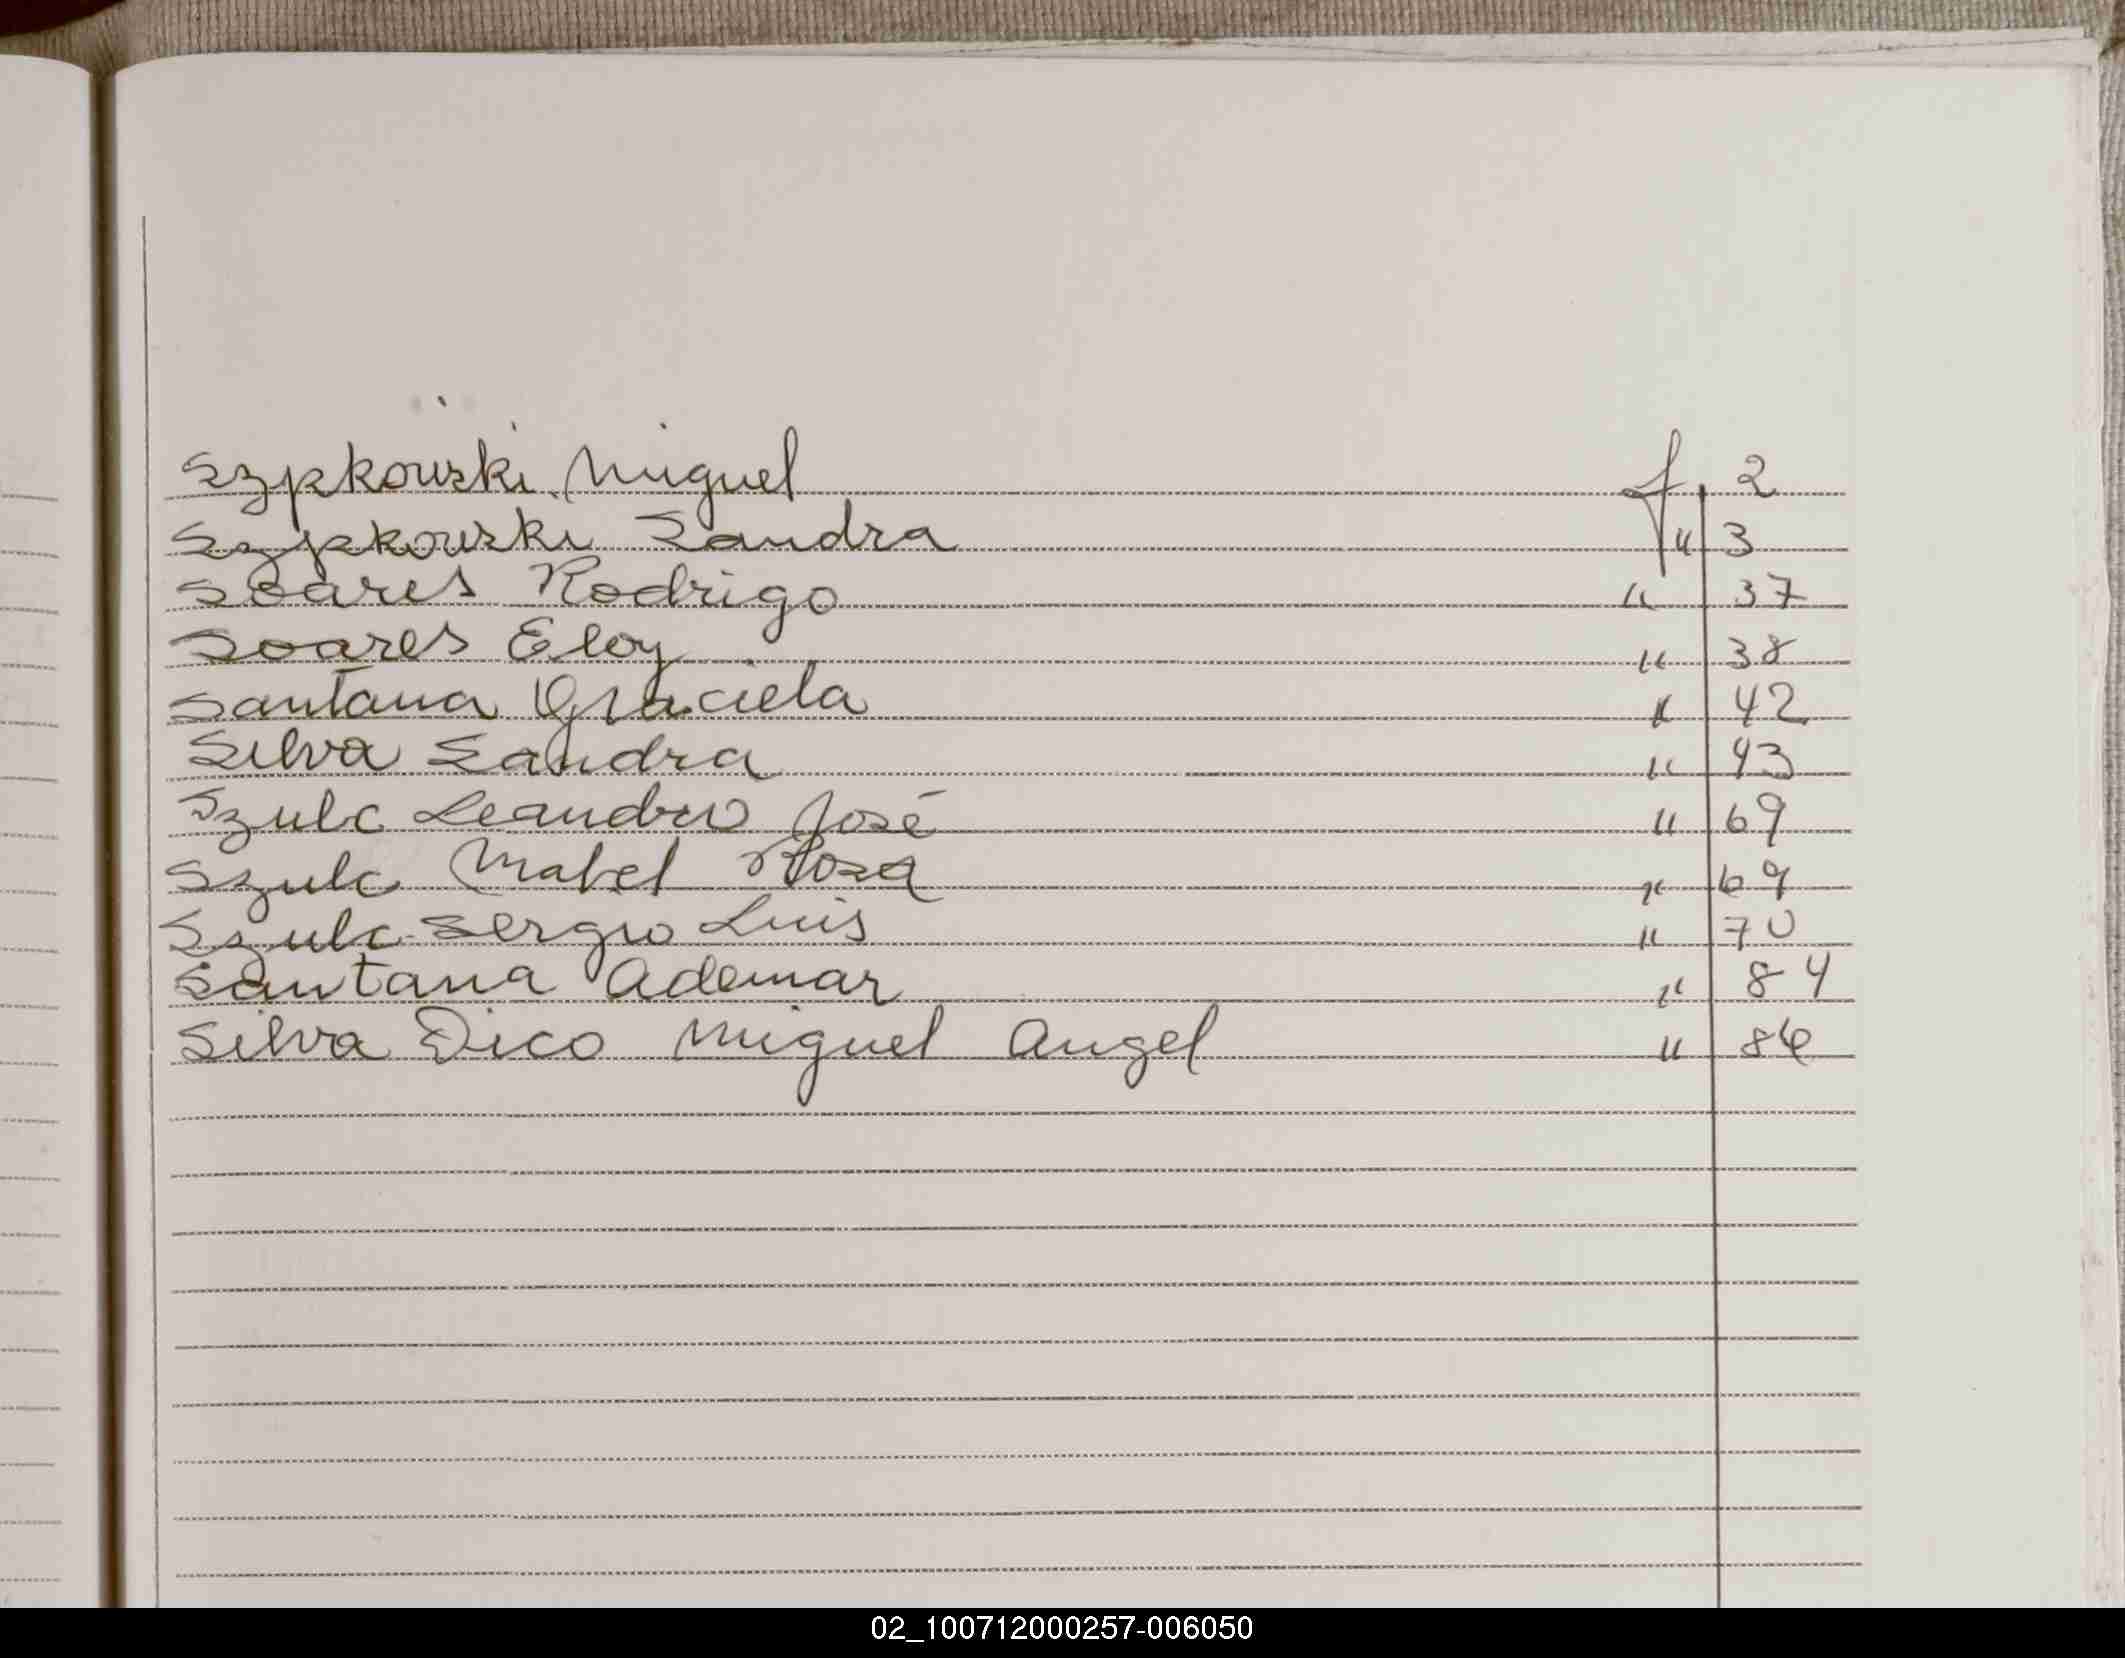 Szpkowski Miguel f. 2
Szpkowski Sandra " 3
Soares Rodrigo " 37
Soares Eloy " 38
Santana Graciela " 42
Silva Sandra " 43
Szulc Leandro José " 69
Szulc Mabel Rosa " 69
Szulc Sergio Luis " 70
Santana Ademar " 84
Silva Dico Miguel Angel " 86
02_100712000257-006050